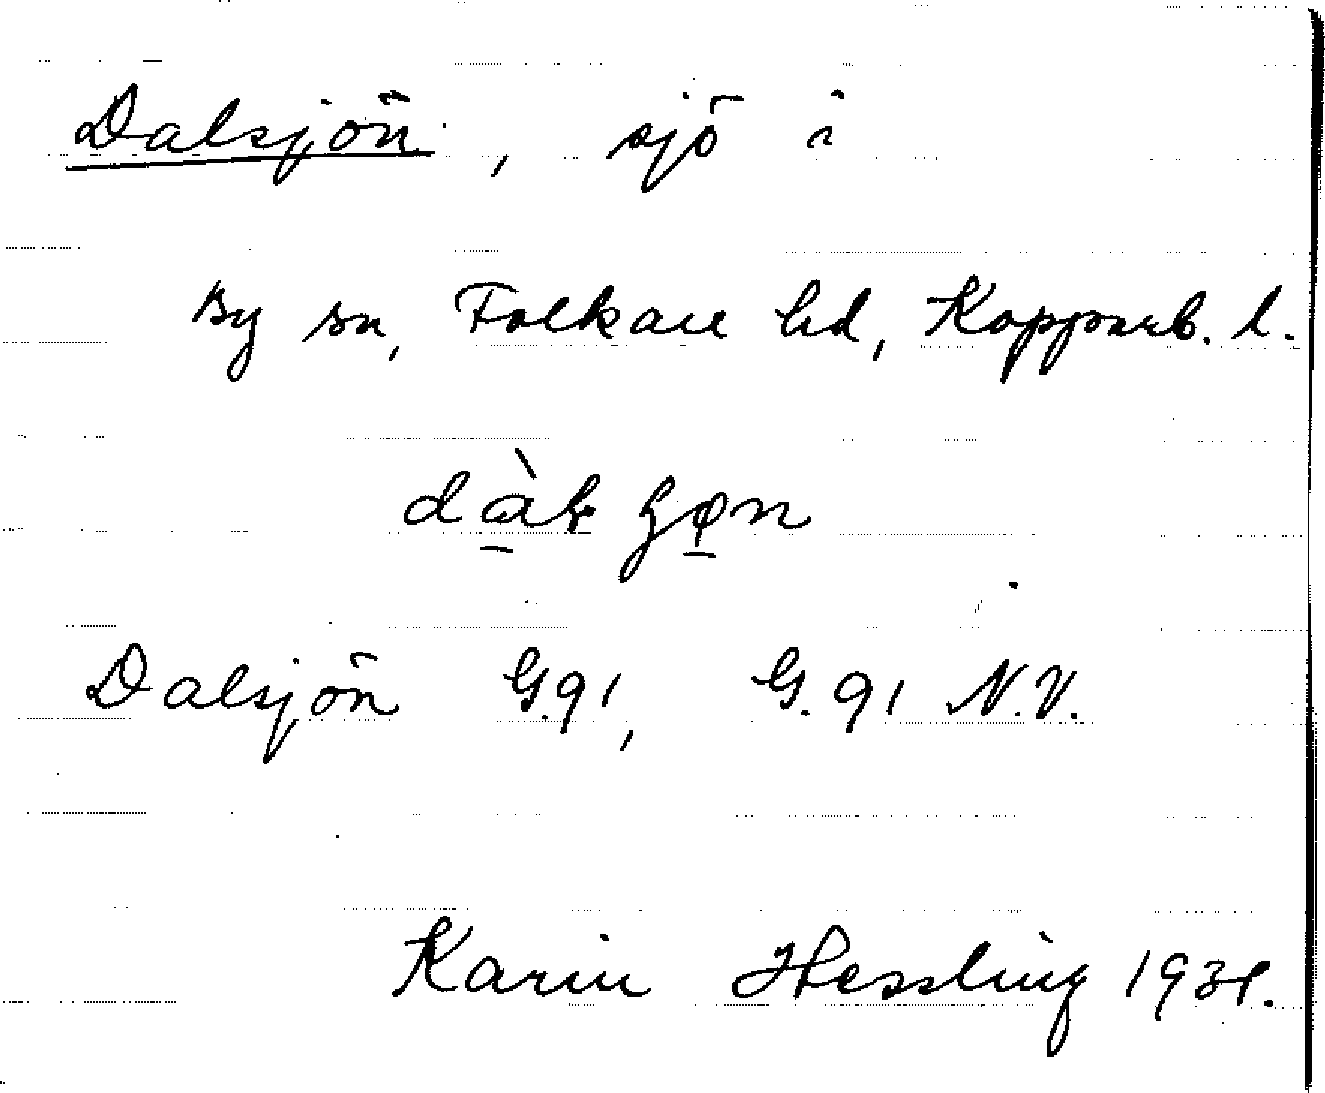 Dalsjön, sjö i
By sn, Folkare hd, Kopparb. l.
Dalsjön G.91, G.91 N.V.
Karin Hessling